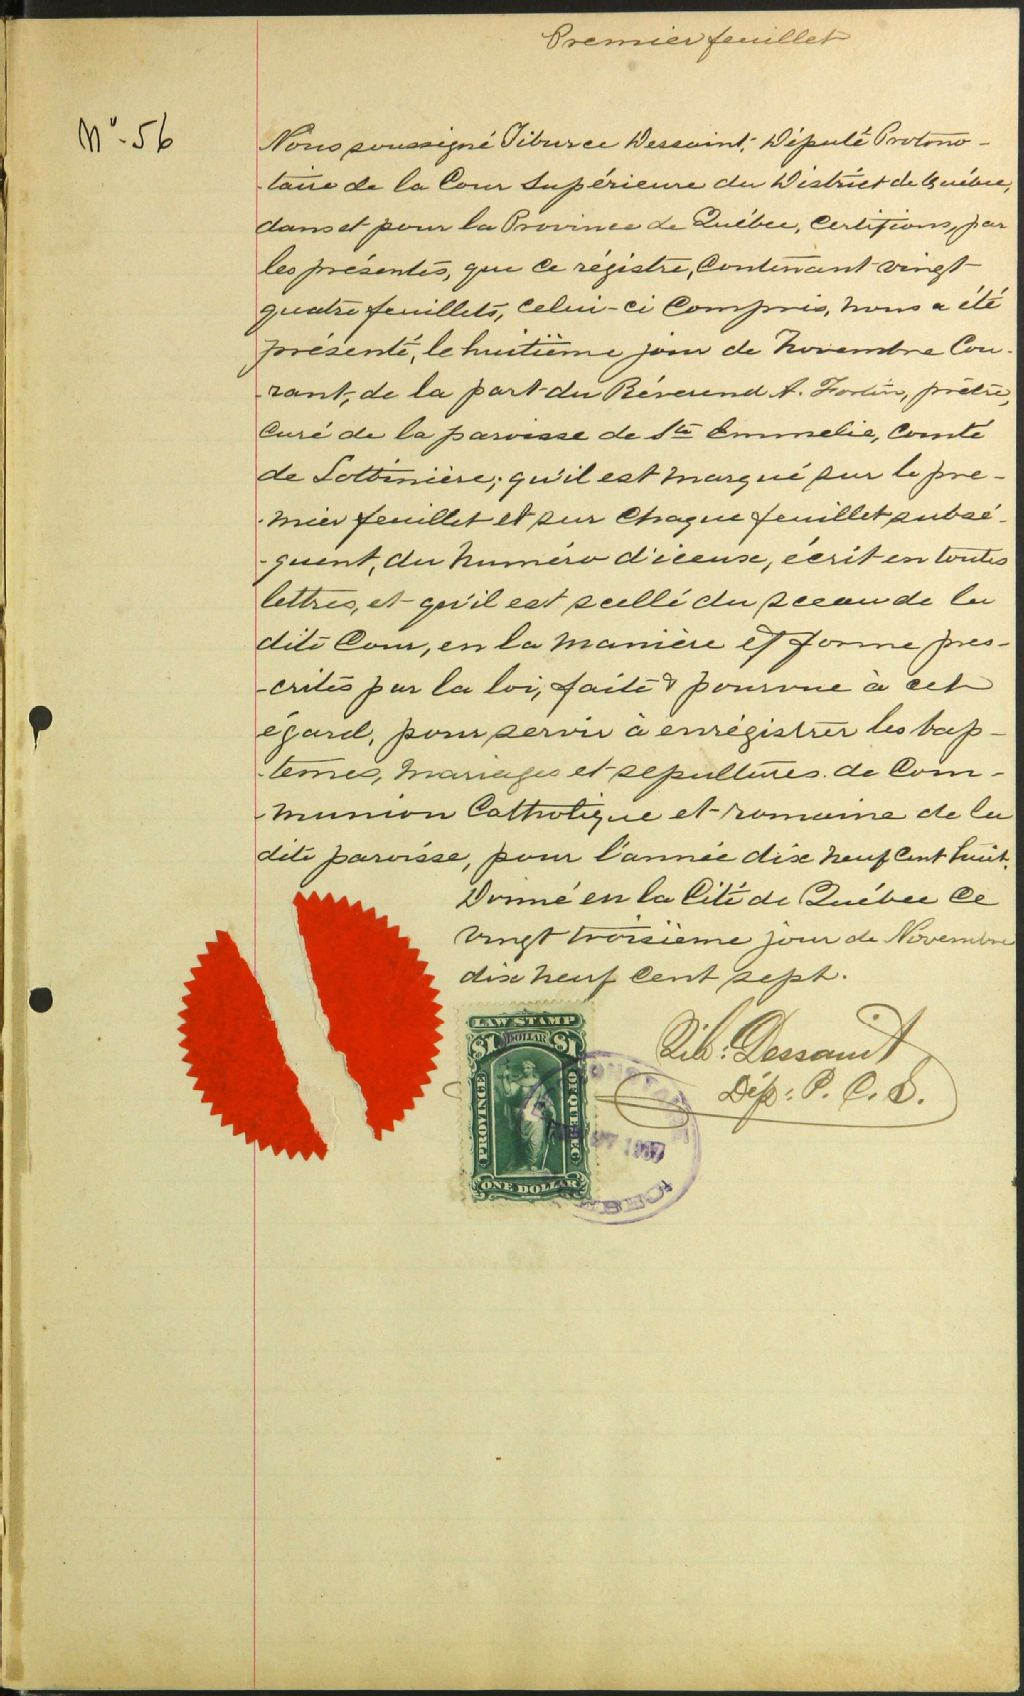 Premier feuillet
No. 56
Nous soussigné Tiburce Dessaint, Député Protono-
-taire de la Cour Supérieure du District de Québec,
dans et pour la Province de Québec, Certifions, par
les présentes, que ce régistre, Contenant vingt
quatre feuillets, celui-ci Compris, nous a été
présenté, le huitième jour de Novembre Cou-
-rant, de la part du Révérend A. Fortin, prêtre,
Curé de la paroisse de Ste Emmelie, Comté
de Lotbinière; qu'il est marqué sur le pre-
-mier feuillet et sur Chaque feuillet subsé-
-quent, du Numéro d'iceux, écrit en toutes
lettres, et qu'il est scellé du sceau de la
dite Cour, en la manière et forme pres-
-crites par la loi, faite & pourvue à cet
égard, pour servir à enrégistrer les bap-
-temes, mariages et sepultures de Com-
-munion Catholique et romaine de la
dite paroisse, pour l'année dix neuf Cent huit.
Donné en la Cité de Québec Ce
vingt troisième jour de Novembre
dix neuf Cent sept.
Tib: Dessaint
Dép: P. C. S.
LAW STAMP
$1 DOLLAR $1
PROVINCE
OF QUEBEC
ONE DOLLAR